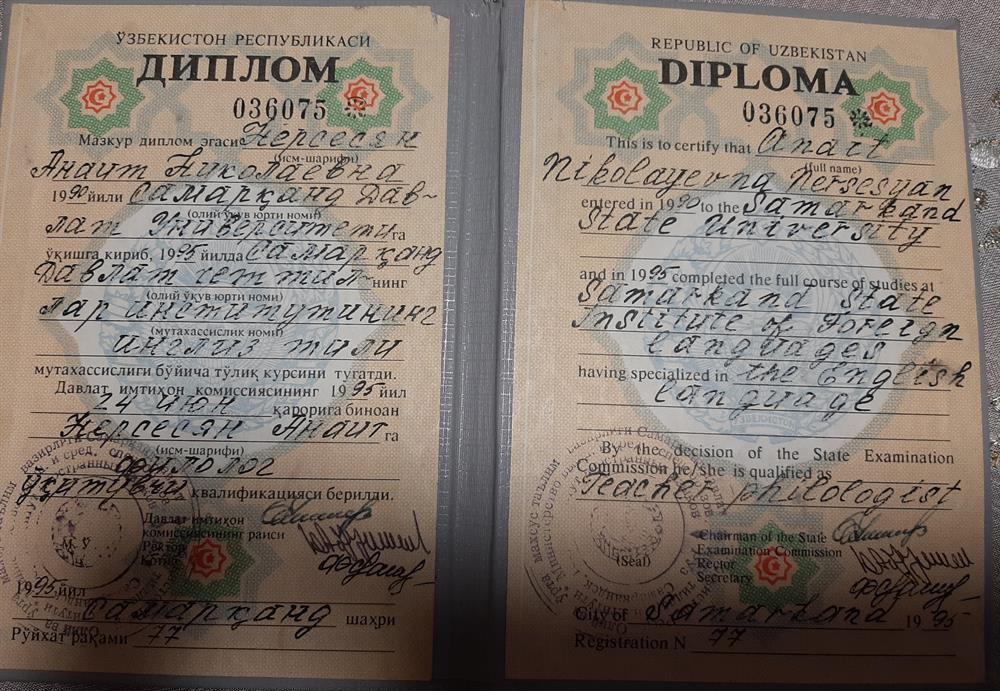 ЎЗБЕКИСТОН РЕСПУБЛИКАСИ
ДИПЛОМ
036075
Мазкур диплом эгаси Нерсесян
(исм-шарифи)
Анаит Николаевна
1990 йили Самарқанд Дав-
(олий ўқув юрти номи)
лат Университети га
ўқишга кириб, 1995 йилда Самарқанд
Давлат чет тил- нинг
(олий ўқув юрти номи)
лар институтининг
(мутахассислик номи)
инглиз тили
мутахассислиги бўйича тўлиқ курсини тугатди.
Давлат имтиҳон комиссиясининг 1995 йил
24 июн қарорига биноан
Нерсесян Анаит га
(исм-шарифи)
филолог
ўқитувчи квалификацияси берилди.
Давлат имтиҳон
комиссиясининг раиси
Ректор
Котиб
1995 йил
Самарқанд шаҳри
Рўйхат рақами 77
REPUBLIC OF UZBEKISTAN
DIPLOMA
036075
This is to certify that Anait
(full name)
Nikolayevna Nersesyan
entered in 1990 to the Samarkand
State University
and in 1995 completed the full course of studies at
Samarkand State
Institute of Foreign
languages
having specialized in the English
language
By the decision of the State Examination
Commission he/she is qualified as
Teacher philologist
Chairman of the State
Examination Commission
Rector
Secretary
(Seal)
City of Samarkand 1995
Registration N 77